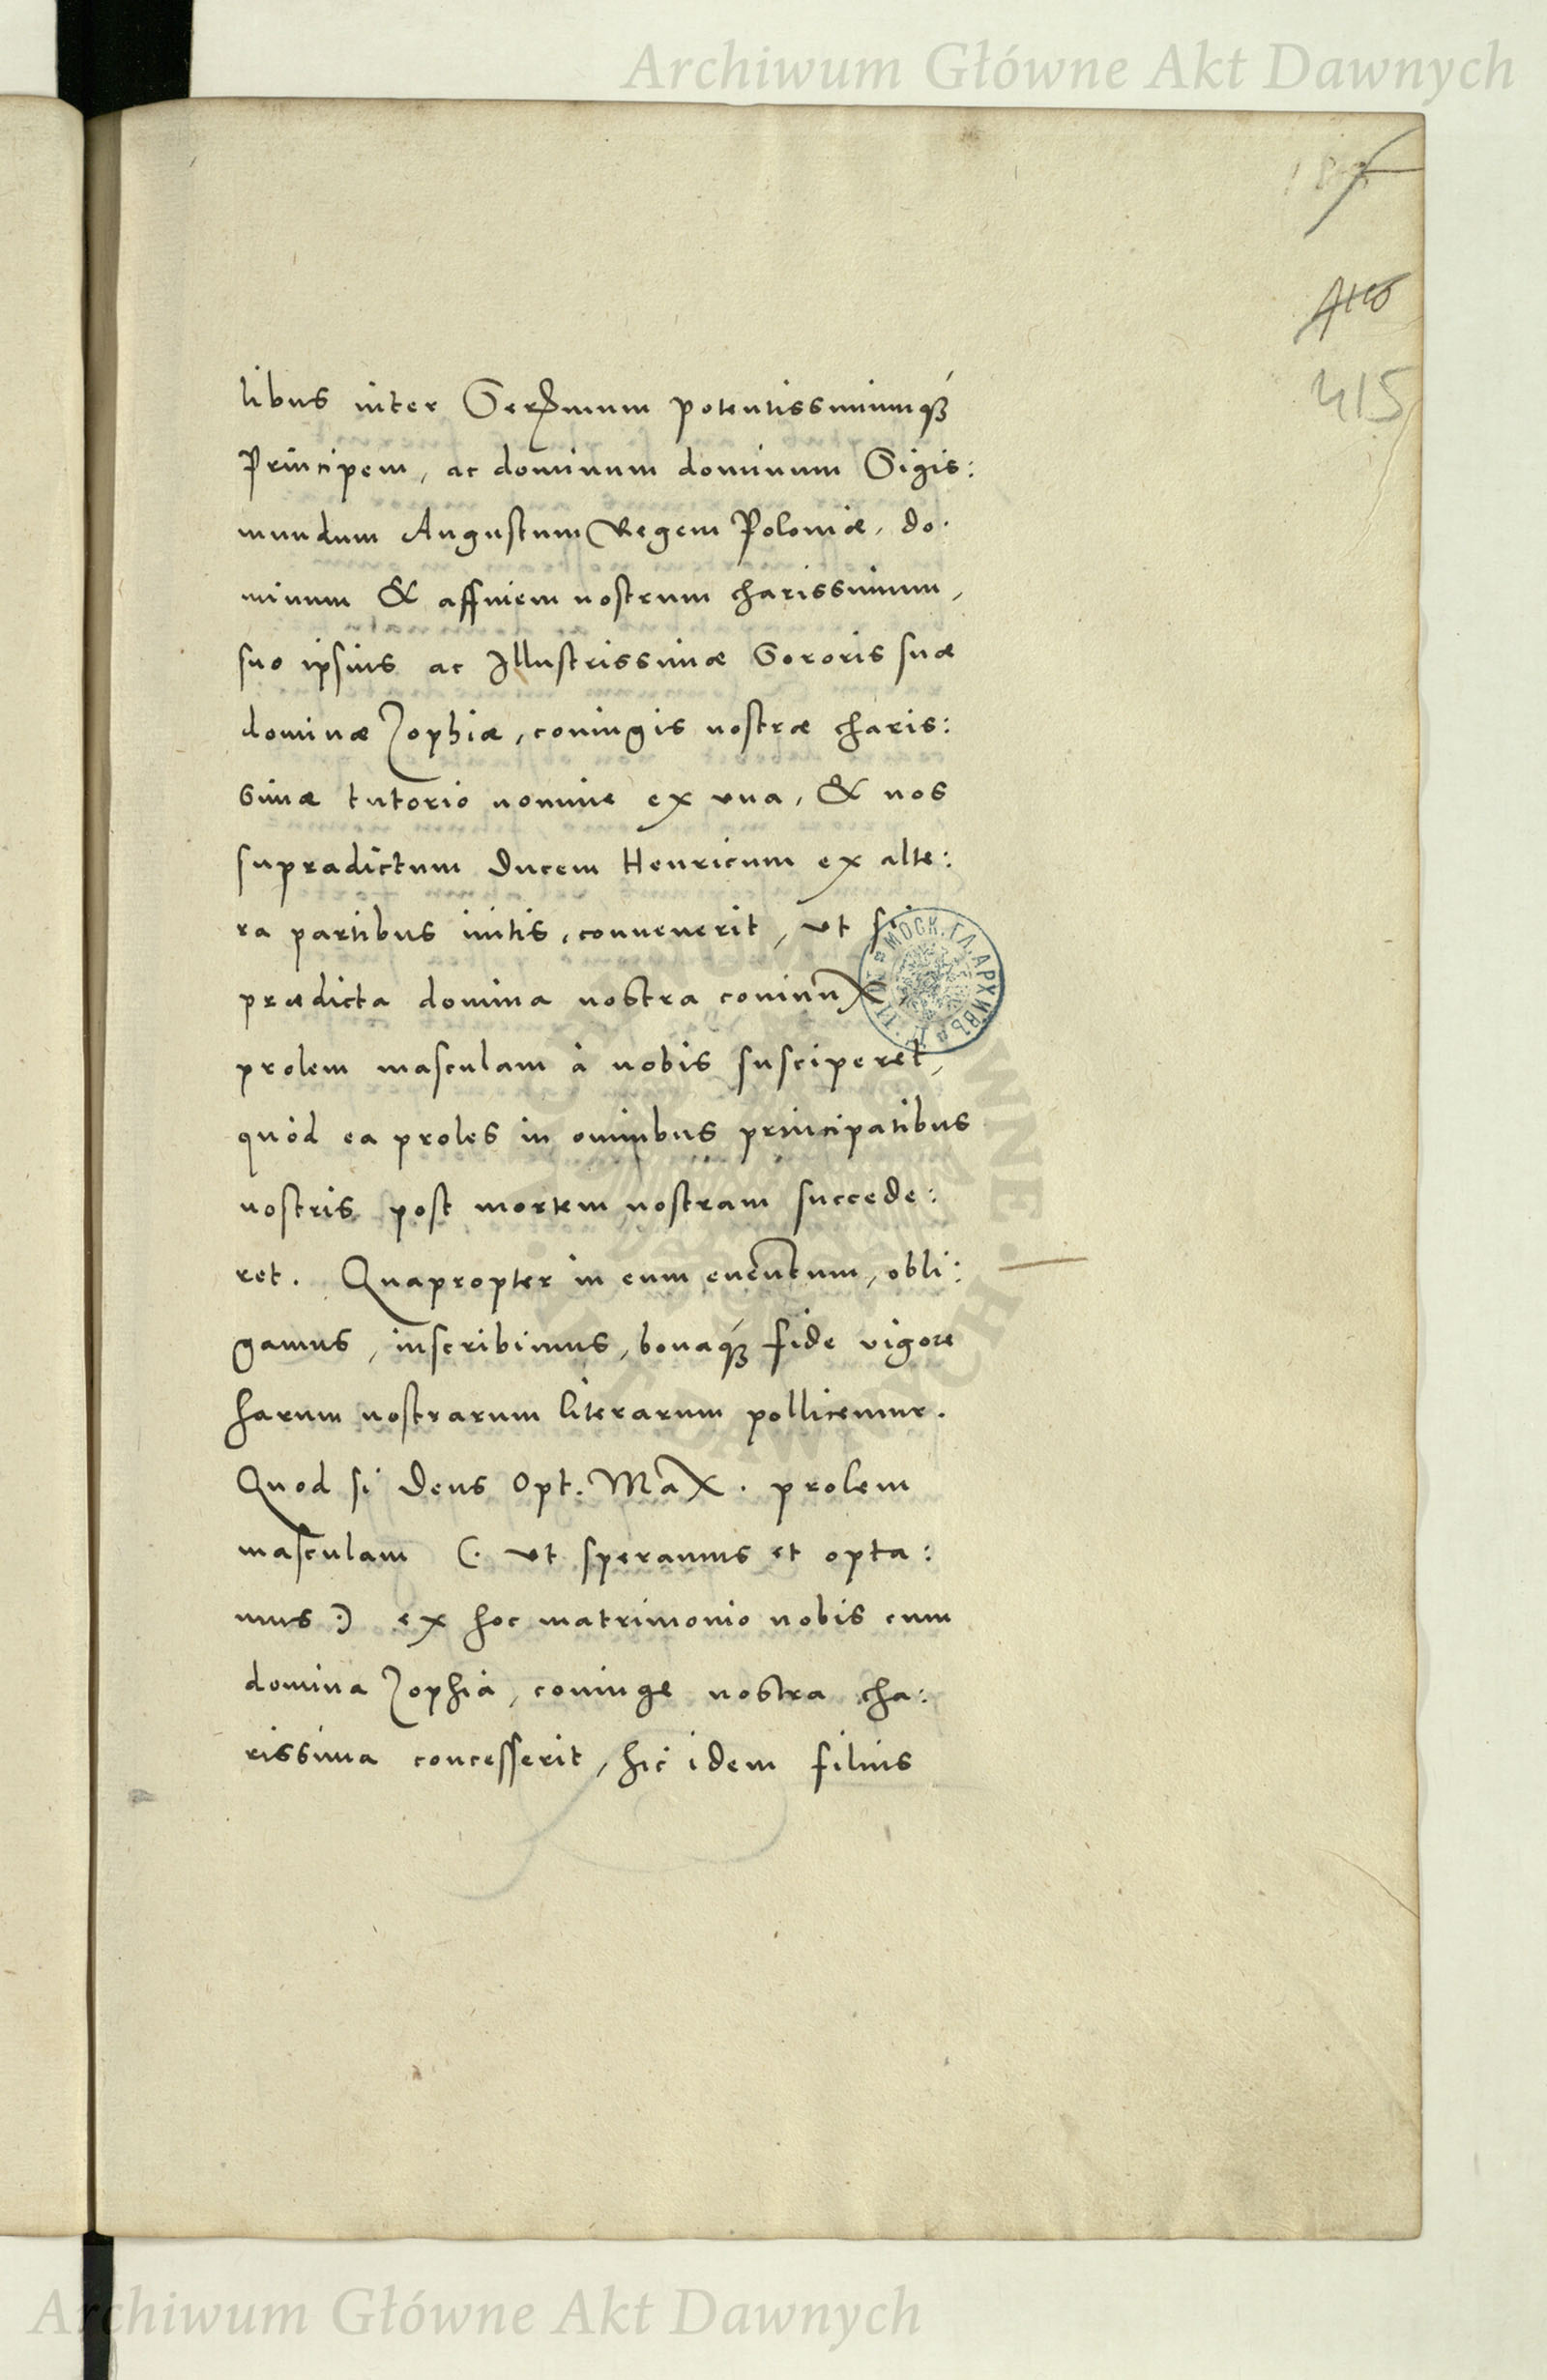 Archiwum Główne Akt Dawnych
415
libus inter Serᵐᵘm potentissimumq́ꝫ
Principem, ac dominum dominum Sigis:
mundum Augustum Regem Poloniæ, do:
minum & affinem nostrum charissimum,
suo ipsius ac Illustrissimæ Sororis suæ
dominæ Zophiæ, coniugis nostræ charis:
simæ tutorio nomine ex vna, & nos
supradictum Ducem Henricum ex alte:
ra partibus initis, conuenerit, vt si
prædicta domina nostra coniunx
prolem masculam à nobis susciperet,
quòd ea proles in omnibus principatibus
nostris post mortem nostram succede:
ret. Quapropter in eum euentum, obli:
gamus, inscribimus, bonaq́ꝫ fide vigore
harum nostrarum literarum pollicemur.
Quod si Deus Opt. Max. prolem
masculam (: vt speramus et opta:
mus :) ex hoc matrimonio nobis cum
domina Zophia, coniuge nostra cha:
rissima concesserit, hic idem filius
МОСК. ГЛ. АРХИВЪ
Archiwum Główne Akt Dawnych